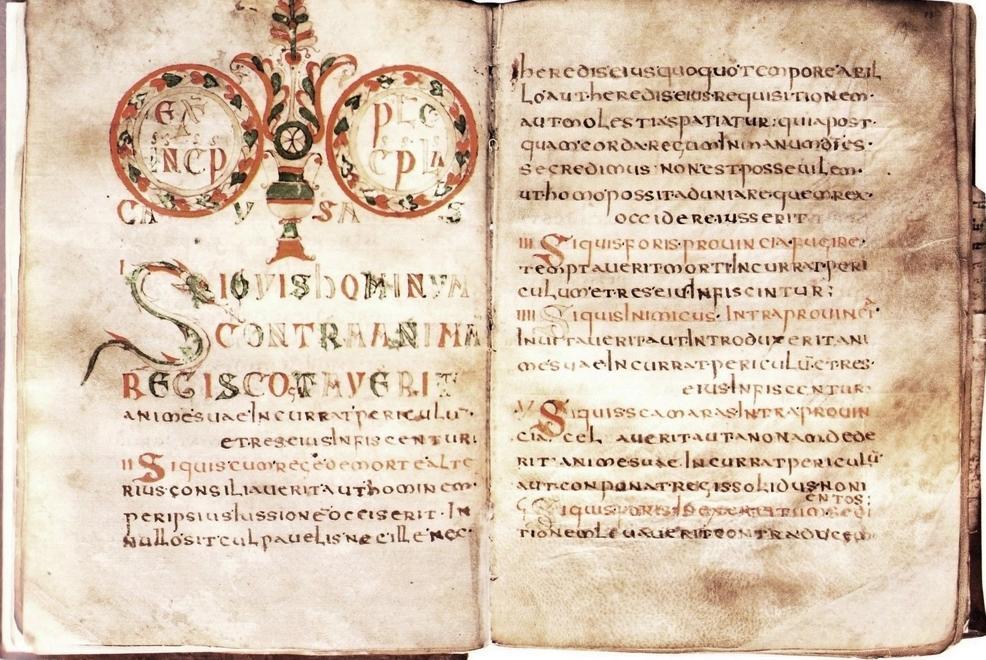 INCP
CA V SA S
I SIQVIS hOMINVM
CONTRA ANIMA
REGIS COGITAVERIT
animesuae incurrat periculū
et res eius infiscentur;
II Siquis cum rege de morte alte
rius consiliaverit aut hominem
per ipsius iussione occiserit. In
nullo sit culpavelis nec ille nec
heredis eius quoquo tempore ab il
lo aut heredis eius requisitionem.
aut molestias patiatur: quia post
quam corda regum in manum dei es
se credimus non est possevilem.
ut homo possit aduniare quem rex.
occidere iusserit
III Siquis foris provincia fugire.
temptaverit morti incurrat peri
culum et res eius infiscintur;
IIII Siquis inimicus. Intra provinci
invitaverit aut introduxerit ani
mesuae incurrat periculū et res
eius infiscentur.
V Siquis scamaras intra provin
cia. celaverit aut anonam dede
rit. animesuae. Incurrat periculū
aut conponat regis solidus noni
entos;
Siquis foris in exercitum sedi
tionem levaverit contra ducem